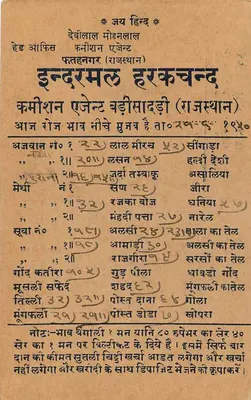 ❀ जय हिन्द ❀
देवीलाल मोडनलाल
हेड ऑफिस कमीशन एजेन्ट
फतहनगर (राजस्थान)
इन्दरमल हरकचन्द
कमीशन एजेन्ट बड़ीसादड़ी (राजस्थान)
आज रोज भाव नीचे मुजब है ता० १९५०
अजवान नं० १ २२ लाल मीरच सींगाड़ा
" " २०॥ लसन हल्दी देशी
जर्दा तम्बाकू असालिया
मेथी नं० १ सण २८ जीरा
" " ३२ रजका बोज धनिया
" " मंहदी पत्ता नारेल
सूवा नं० १ अलसी अलसी का तेल
" " आमाड़ी सरसों का तेल
" " राजगीरा धाबडी गोंद
गोंद कतीरा गुड़ पीला
मूसली सफेद शहद मूंगफली का तेल
तिल्ली ३२ पोस्त दाना गोला
मूंगफली पोस्त डोडा खोपरा
नोट:-भाव बैंगाली १ मन यानि ८० रुपेभर का सेर ४०
सेर का १ मन पर बिल्टीकट के दिये है। इसमें सिर्फ चार
दान की कीमत सुतली बिड़ी खर्चा आड़त लगेगा और खर्चा
नहीं लगेगा और खरीदी के साथ डिपाजिट मेजने की कृपाकरें।